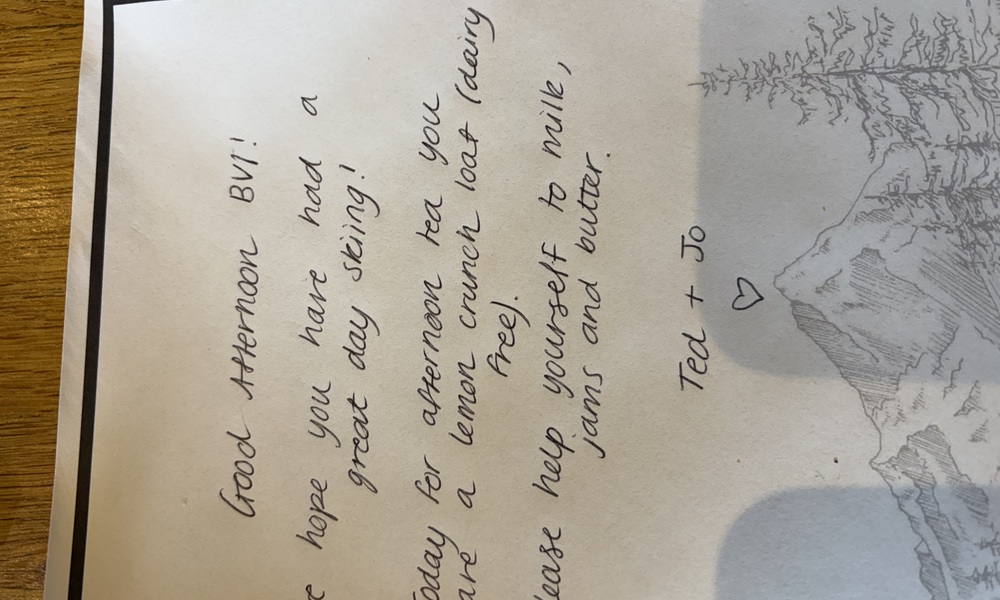 Good Afternoon BVI!
e hope you have had a
great day skiing!
Today for afternoon tea you
ave a lemon crunch loaf (dairy
free).
lease help yourself to milk,
jams and butter.
Ted + Jo
♡